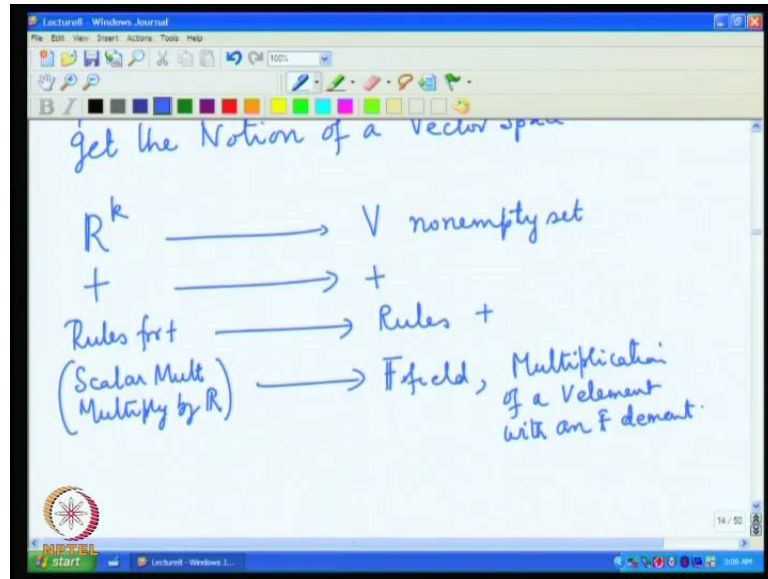 Lecture8 - Windows Journal
File Edit View Insert Actions Tools Help
100%
B I
get the Notion of a Vector space
R^k → V nonempty set
+ → +
Rules for + → Rules +
(Scalar Mult → F field, Multiplication
Multiply by R) of a V element
with an F element.
14 / 50
NPTEL
start Lecture8 - Windows J... 3:06 AM